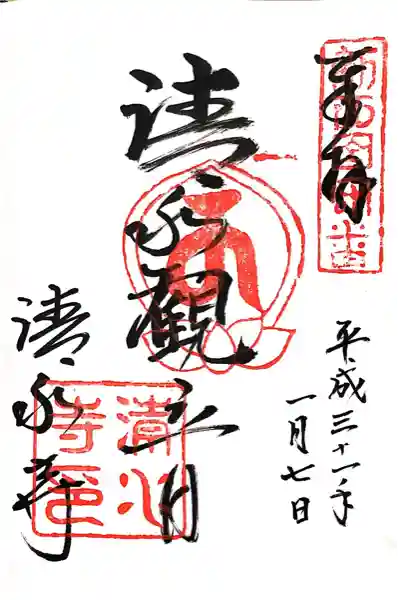 奉拝
平成三十一年
一月七日
清水観音
清水寺
清水
寺印